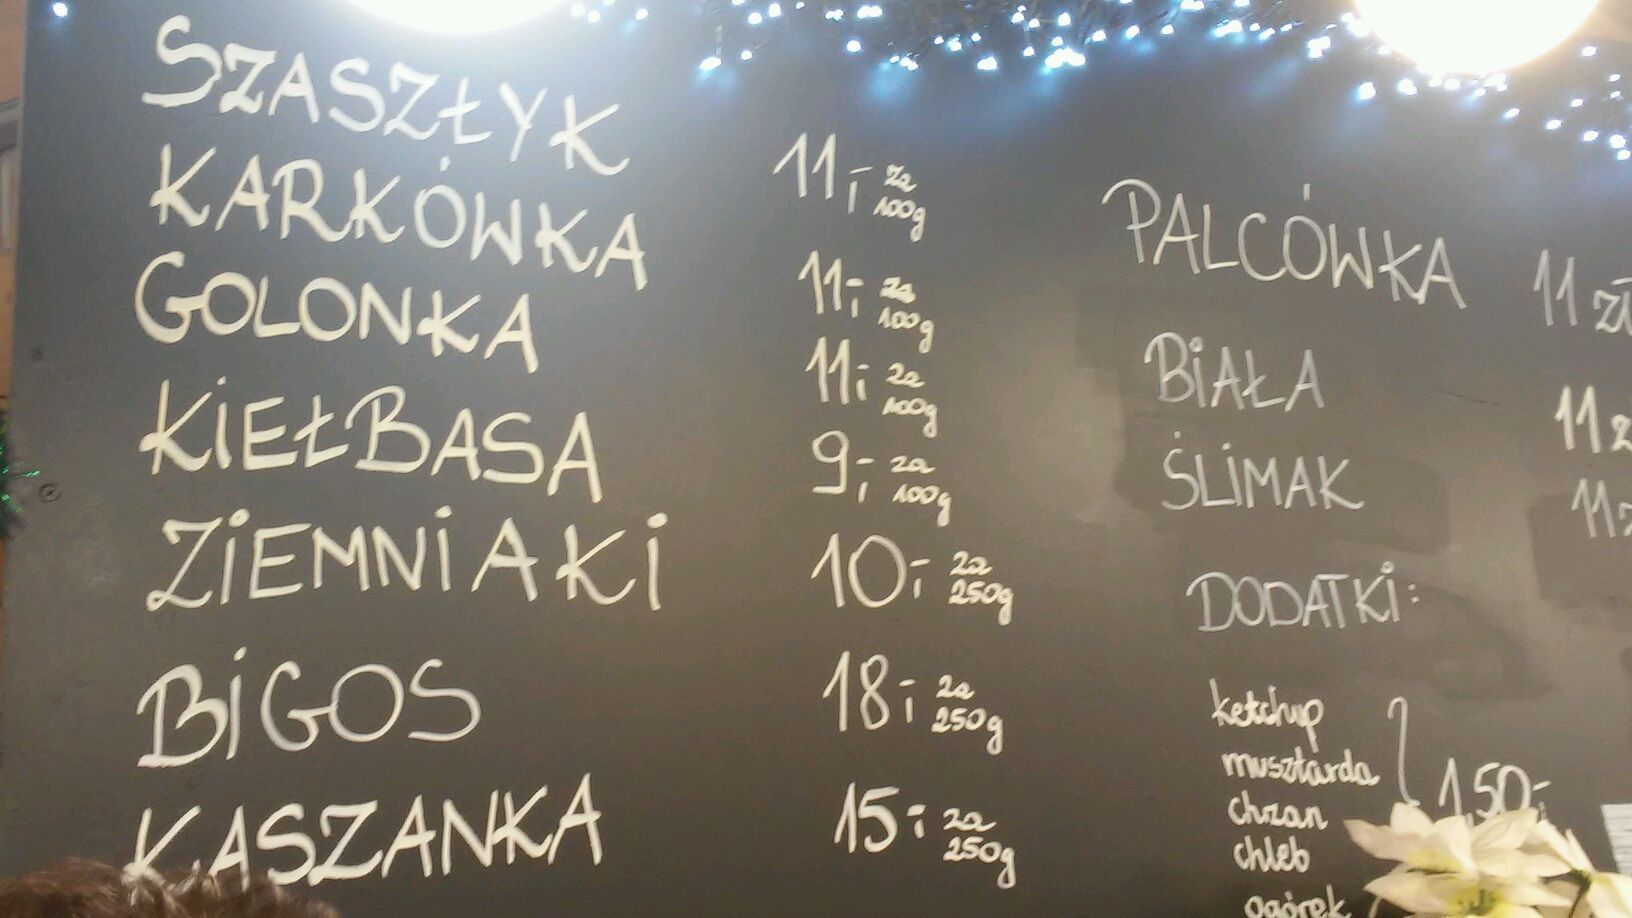 SZASZŁYK 11,- za 100g
KARKÓWKA 11,- za 100g
GOLONKA 11,- za 100g
KIEŁBASA 9,- za 100g
ZIEMNIAKI 10,- za 250g
BIGOS 18,- za 250g
KASZANKA 15,- za 250g
PALCÓWKA 11 zł
BIAŁA 11 z
ŚLIMAK 11 z
DODATKI:
ketchup
musztarda
chrzan
chleb
ogórek
1,50,-